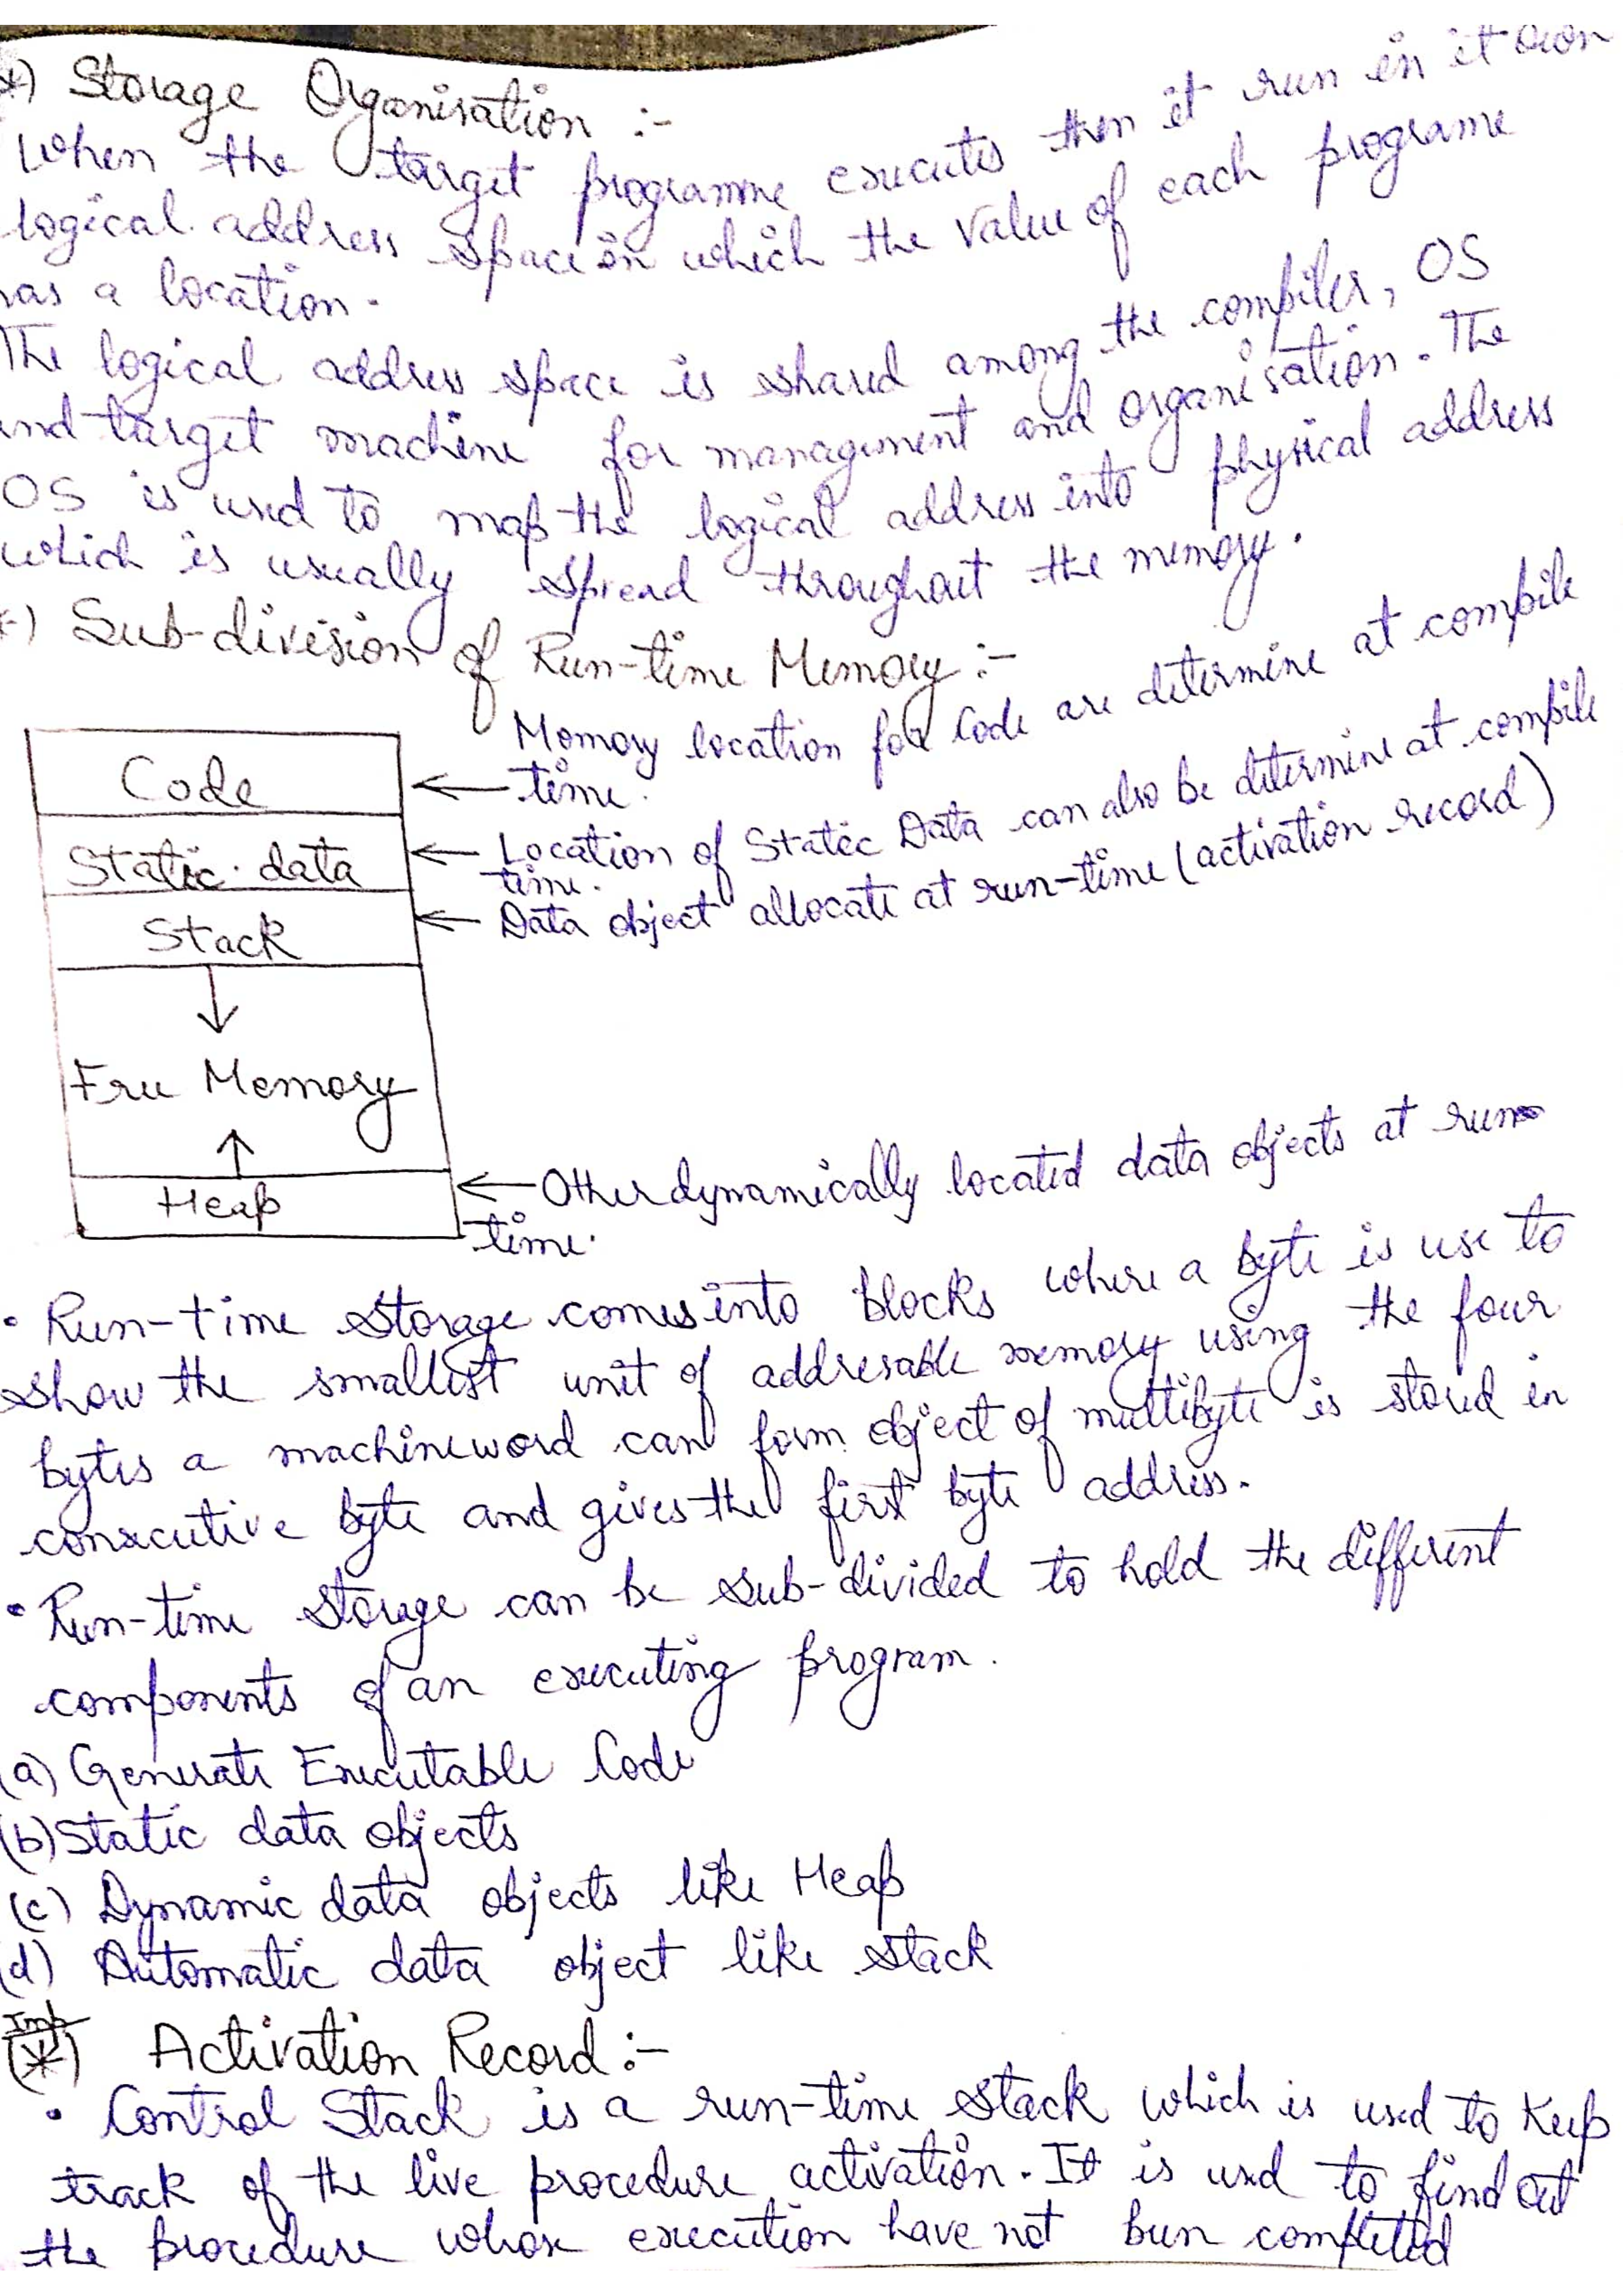 *) Storage Organisation :-
When the target programme executes then it run in it own
logical address space in which the value of each programe
has a location.
The logical address space is shared among the compiler, OS
and target machine for management and organisation. The
OS is used to map the logical address into physical address
which is usually spread throughout the memory.
*) Sub-division of Run-time Memory :-
Memory location for Code are determine at compile
Code ← time.
Static data ← Location of Static Data can also be determine at compile
time.
Stack ← Data object allocate at run-time (activation record)
↓
Free Memory
↑
Heap ← Other dynamically located data objects at run
time.
• Run-time storage comes into blocks where a byte is use to
show the smallest unit of addresable memory using the four
bytes a machineword can form object of multibyte is stored in
consecutive byte and gives the first byte address.
• Run-time storage can be sub-divided to hold the different
components of an executing program.
(a) Generate Executable Code
(b) Static data objects
(c) Dynamic data objects like Heap
(d) Automatic data object like stack
Imp
(*) Activation Record :-
• Control Stack is a run-time stack which is used to keep
track of the live procedure activation. It is used to find out
the procedure whose execution have not been completed